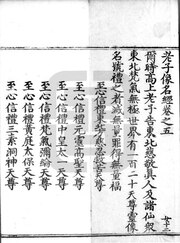 老子像名經卷之五
爾時高上老子告東北慈敬真人及諸仙衆
東北梵氣無極世界有一百二十天尊靈像
名號禮之者滅無量罪得無量福
至心信禮東華天尊
至心信禮元靈高天尊
至心信禮中皇太一天尊
至心信禮梵氣彌綸天尊
至心信禮黃庭太保天尊
至心信禮三素洞神天尊